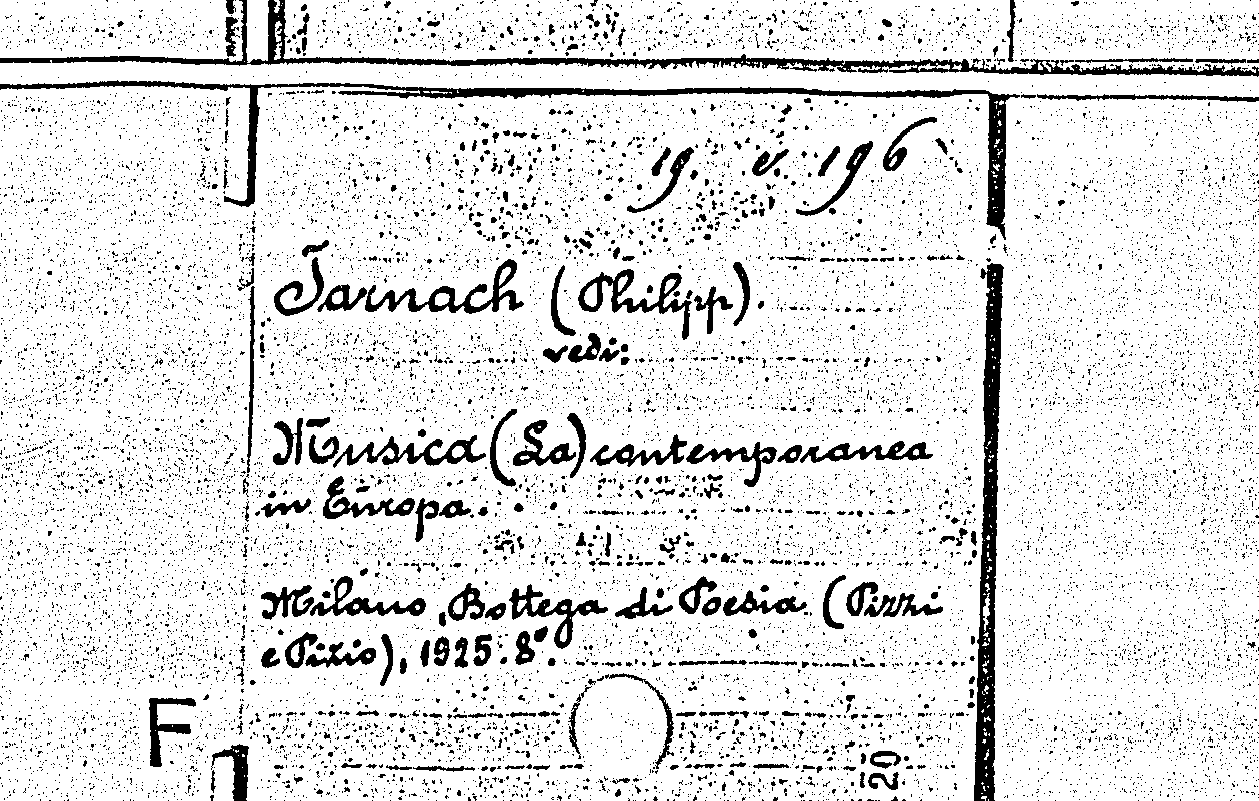 19. v. 196
Jarnach (Philipp).
vedi:
Musica (La) contemporanea
in Europa. . .
Milano, Bottega di Poesia (Pizzi
e Pizio), 1925. 8°.
F
20